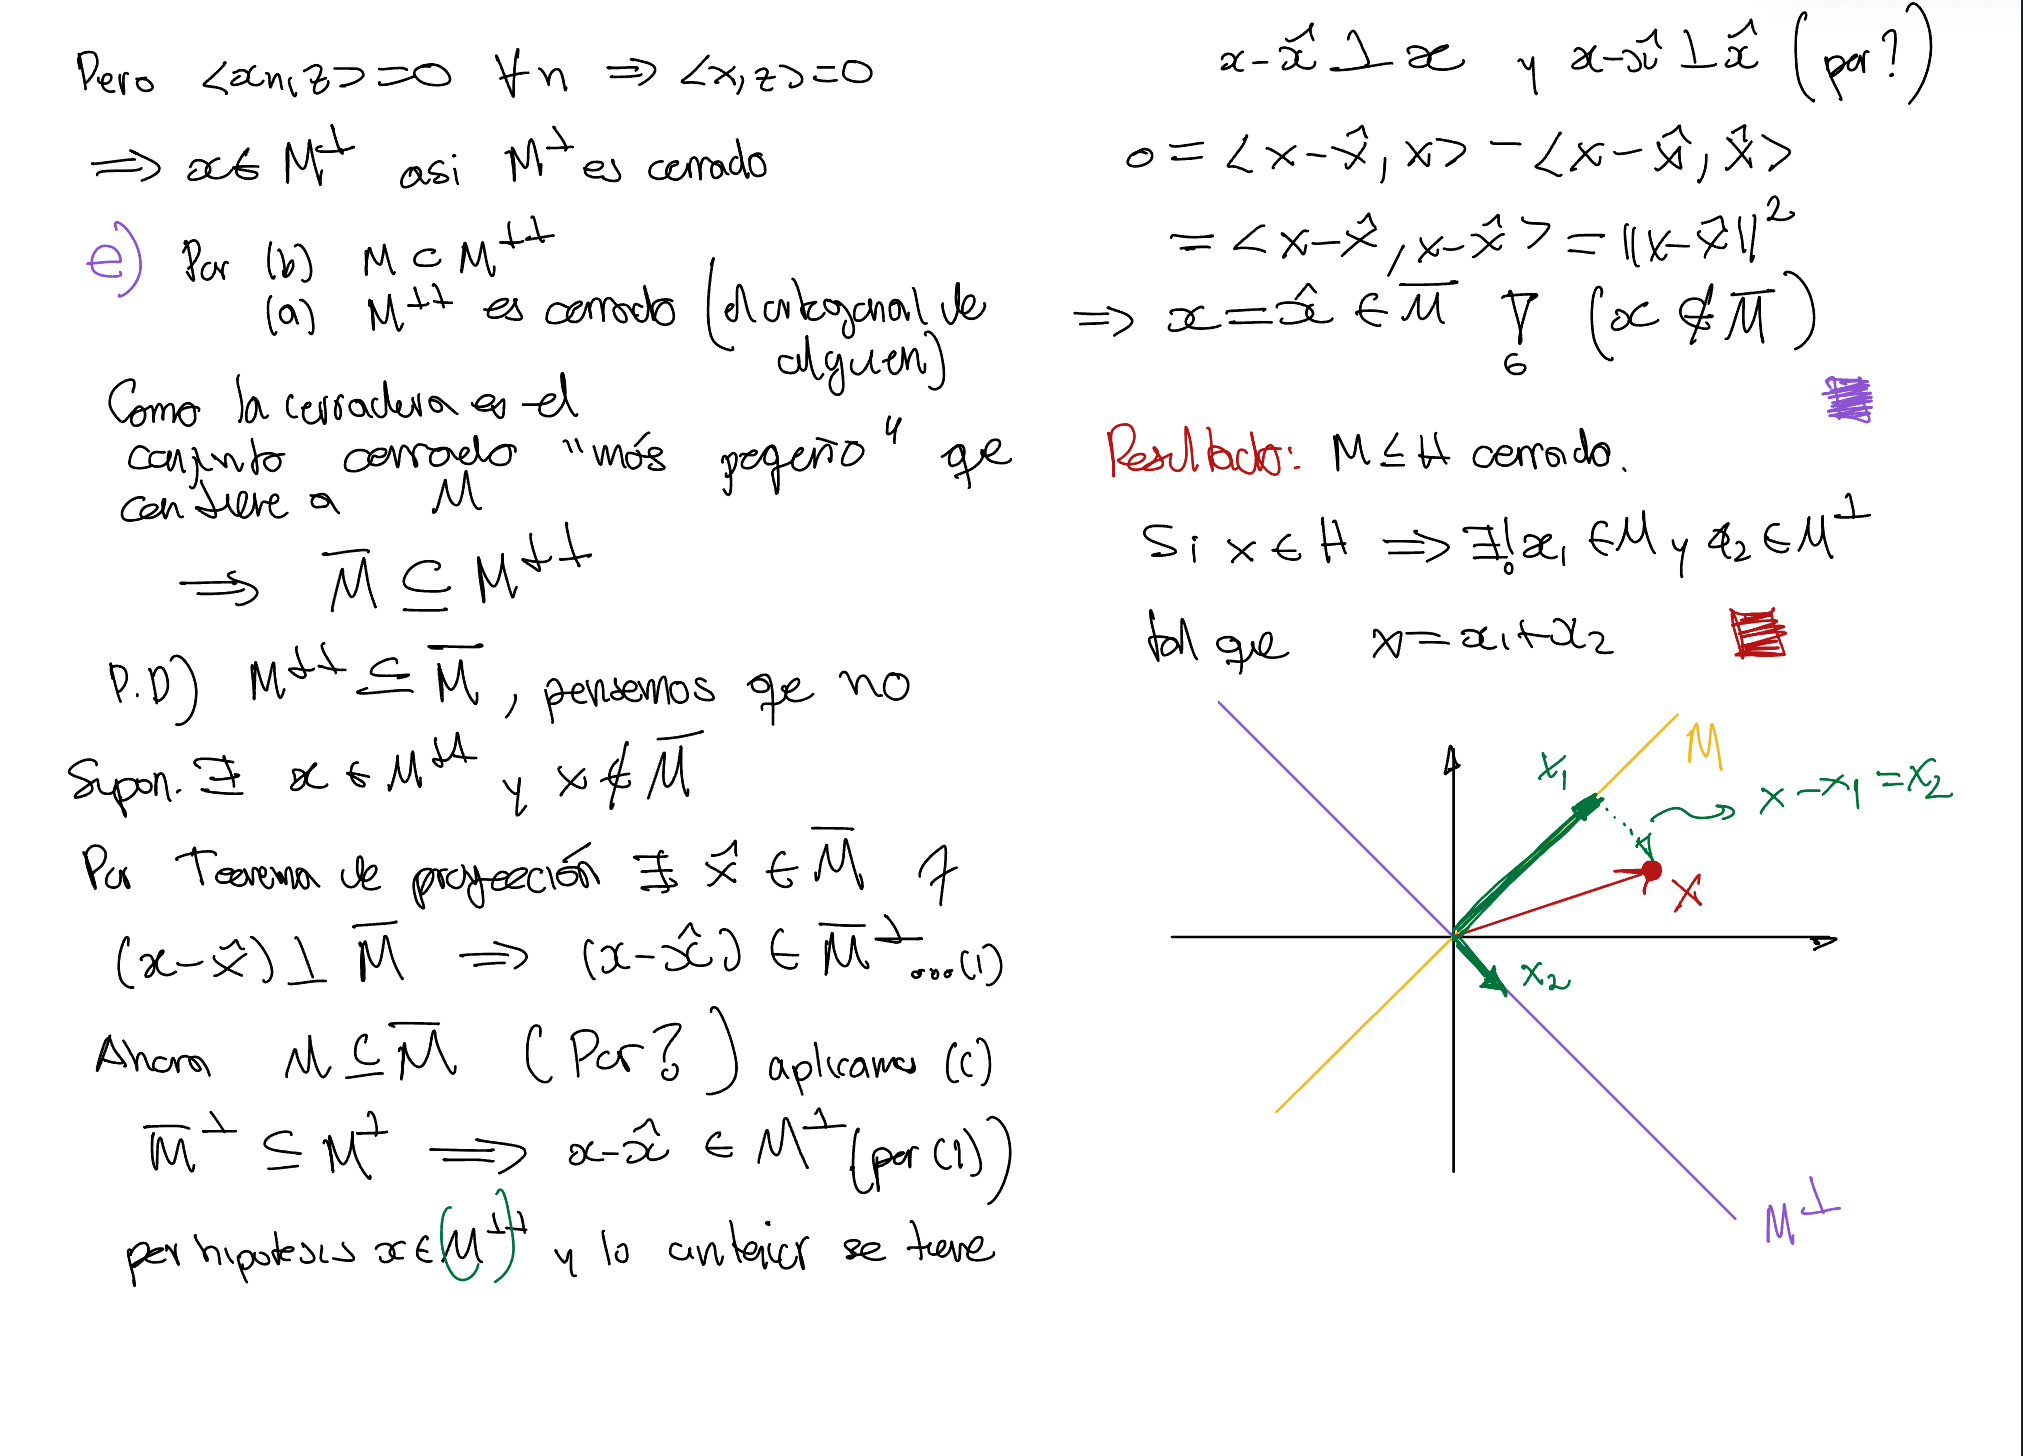 Pero <xn,z>=0 ∀n ⇒ <x,z>=0
⇒ x∈ M^⊥ asi M^⊥ es cerrado
e) Por (b) M ⊂ M^⊥⊥
(a) M^⊥⊥ es cerrado (el ortogonal de
alguen)
Como la cerradura es el
conjunto cerrado "más pequeño" que
contiene a M
⇒ M̅ ⊆ M^⊥⊥
P.D) M^⊥⊥ ⊆ M̅, pensemos que no
Supon. ∃ x ∈ M^⊥⊥ y x ∉ M̅
Por Teorema de proyección ∃ x̂ ∈ M̅ ⊃
(x-x̂) ⊥ M̅ ⇒ (x-x̂) ∈ M̅^⊥ ...(1)
Ahora M ⊆ M̅ (Por?) aplicamos (c)
M̅^⊥ ⊆ M^⊥ ⇒ x-x̂ ∈ M^⊥ (por (1))
por hipotesis x∈(M^⊥)^⊥ y lo anterior se tiene
x-x̂ ⊥ x y x-x̂ ⊥ x̂ (por?)
0 = <x-x̂, x> - <x-x̂, x̂>
= <x-x̂, x-x̂> = ||x-x̂||²
⇒ x = x̂ ∈ M̅ ∇ (x ∉ M̅)
6
Resultado: M ≤ H cerrado.
Si x ∈ H ⇒ ∃! x₁ ∈ M y x₂ ∈ M^⊥
tal que x = x₁+x₂
M
x₁
x-x₁=x₂
x
x₂
M^⊥